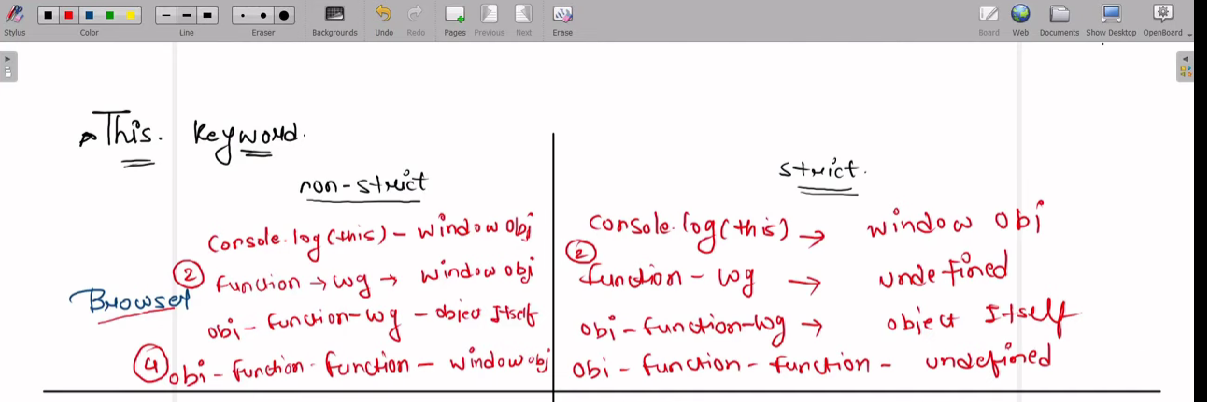 Stylus Color Line Eraser Backgrounds Undo Redo Pages Previous Next Erase Board Web Documents Show Desktop OpenBoard
This. Keyword.
non-strict
console.log(this) - window obj
② function → log → window obj
Browser
obj - function-log - object Itself
④ obj - function - function - window obj
strict.
console.log(this) → window obj
②
function - log → undefined
obj - function-log → object Itself
obj - function - function - undefined